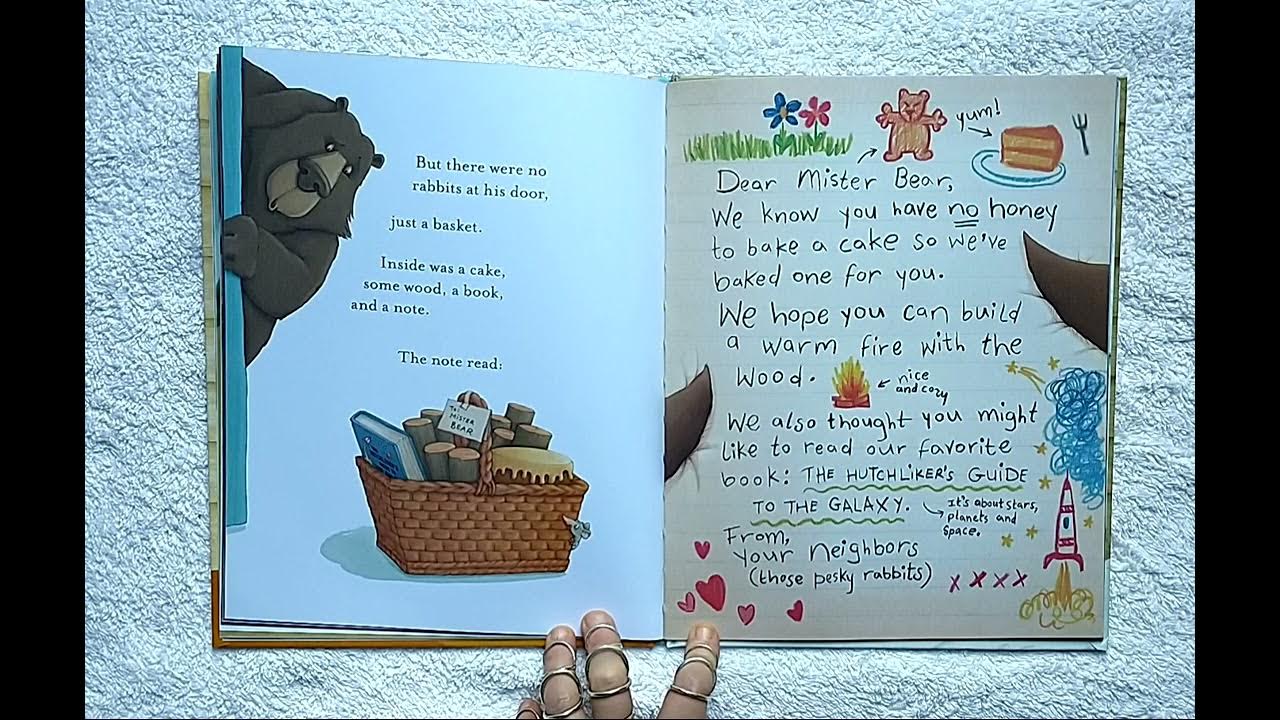 But there were no
rabbits at his door,
just a basket.
Inside was a cake,
some wood, a book,
and a note.
The note read:
To:
MISTER
BEAR
yum!
Dear Mister Bear,
We know you have no honey
to bake a cake so we've
baked one for you.
We hope you can build
a warm fire with the
wood.
nice
and cozy
We also thought you might
like to read our favorite
book: THE HUTCHLIKER'S GUIDE
TO THE GALAXY.
It's about stars,
planets and
space.
From,
your neighbors
(those pesky rabbits)
x x x x